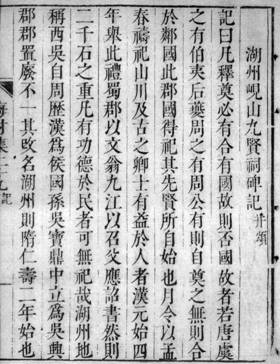 湖州峴山九賢祠碑記并頌
記曰凡釋奠必有合有國故則否國故者若唐虞
之有伯夷后夔周之有周公有則自奠之無則合
於鄰國此郡國得祀其先賢所自始也月令以孟
春禱祀山川及古之卿士有益於人者漢元始四
年舉此禮蜀郡以文翁九江以召父應詔書然則
二千石之重凡有功德於民者可無祀哉湖州地
稱西吳自周歷漢爲侯國孫吳寶鼎中立爲吳興
郡郡置廢不一其改名湖州則隋仁壽二年始也